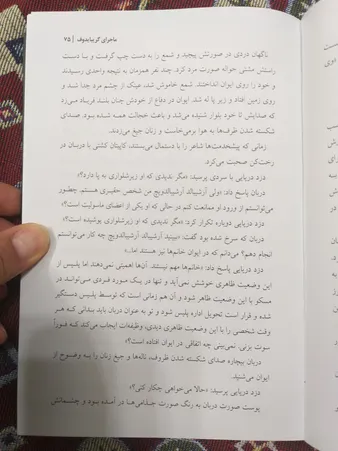 ماجرای گریبایدوف | ۷۵
ناگهان دردی در صورتش پیچید و شمع را به دست چپ گرفت و با دست
راستش مشتی حواله صورت مرد کرد. چند نفر همزمان به نتیجه واحدی رسیدند
و خود را روی ایوان انداختند. شمع خاموش شد، عینک از چشم مرد جدا شد و
روی زمین افتاد و زیر پا له شد. ایوان در دفاع از خودش جان بلند فریاد می‌زد
که صدایش تا خود بلوار شنیده می‌شد و باعث خجالت همه شده بود. صدای
شکسته شدن ظرف‌ها به هوا برمی‌خاست و زنان جیغ می‌زدند.
زمانی که پیشخدمت‌ها شاعر را با دستمال می‌بستند، کاپیتان کشتی با دربان در
رخت‌کن صحبت می‌کرد.
دزد دریایی با سردی پرسید: «مگر ندیدی که او زیرشلواری به پا دارد؟»
دربان پاسخ داد: «ولی آرشیبالد آرشیبالدویچ من شخص حقیری هستم. چطور
می‌توانستم از ورود او ممانعت کنم در حالی که او یکی از اعضای ماسولیت است؟»
دزد دریایی دوباره تکرار کرد: «مگر ندیدی که او زیرشلواری پوشیده است؟»
دربان که سرخ شده بود گفت: «ببینید آرشیبالد آرشیبالدویچ چه کار می‌توانستم
انجام دهم؟ می‌دانم که در ایوان خانم‌ها نیز هستند اما...»
دزد دریایی پاسخ داد: «خانم‌ها مهم نیستند. آن‌ها اهمیتی نمی‌دهند اما پلیس از
این وضعیت ظاهری خوشش نمی‌آید و تنها در یک مورد فردی می‌توانی در
مسکو با این وضعیت ظاهر شود و آن هم زمانی است که توسط پلیس دستگیر
شده و قرار است تحویل اداره پلیس شود و تو به عنوان دربان باید بدانی که هر
وقت شخصی را با این وضعیت ظاهری دیدی، وظیفه‌ات ایجاب می‌کند که فوراً
سوت بزنی. نمی‌بینی چه اتفاقی در ایوان افتاده است؟»
دربان بیچاره صدای شکسته شدن ظروف، ناله‌ها و جیغ زنان را به وضوح از
ایوان می‌شنید.
دزد دریایی پرسید: «حالا می‌خواهی چکار کنی؟»
پوست صورت دربان به رنگ صورت جذامی‌ها در آمده بود و چشمانش